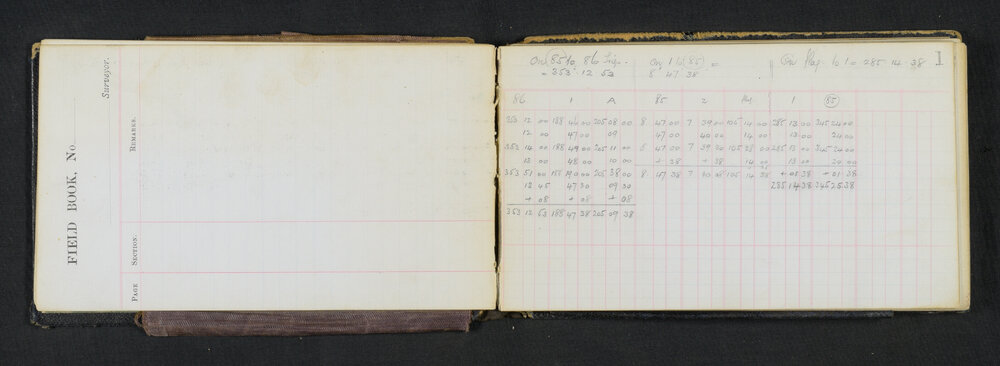 FIELD BOOK, No.
Surveyor.
REMARKS.
SECTION.
PAGE
1
On 85 to 86
= 353 12 53
On 1 to 85 =
8 47 38
On Flag to 1 = 285 14 38
86 1 A 85 2 Flag 1 85
353 12 00 188 46 00 205 08 00 8 47 00 7 39 00 105 14 00 285 13 00 245 24 00
12 00 47 00 09 47 00 40 00 14 00 13 00 24 00
353 14 00 188 49 00 205 11 00 8 47 00 7 39 105 28 00 285 13 00 245 24 00
13 00 48 00 10 00 + 38 + 38 14 00 13 00 24 00
353 51 00 188 19 00 205 38 00 8 47 38 7 38 105 14 38 + 01 38 + 01 38
12 45 47 30 09 30 285 14 38 245 25 38
+ 08 + 08 + 08
353 12 53 188 47 38 205 09 38